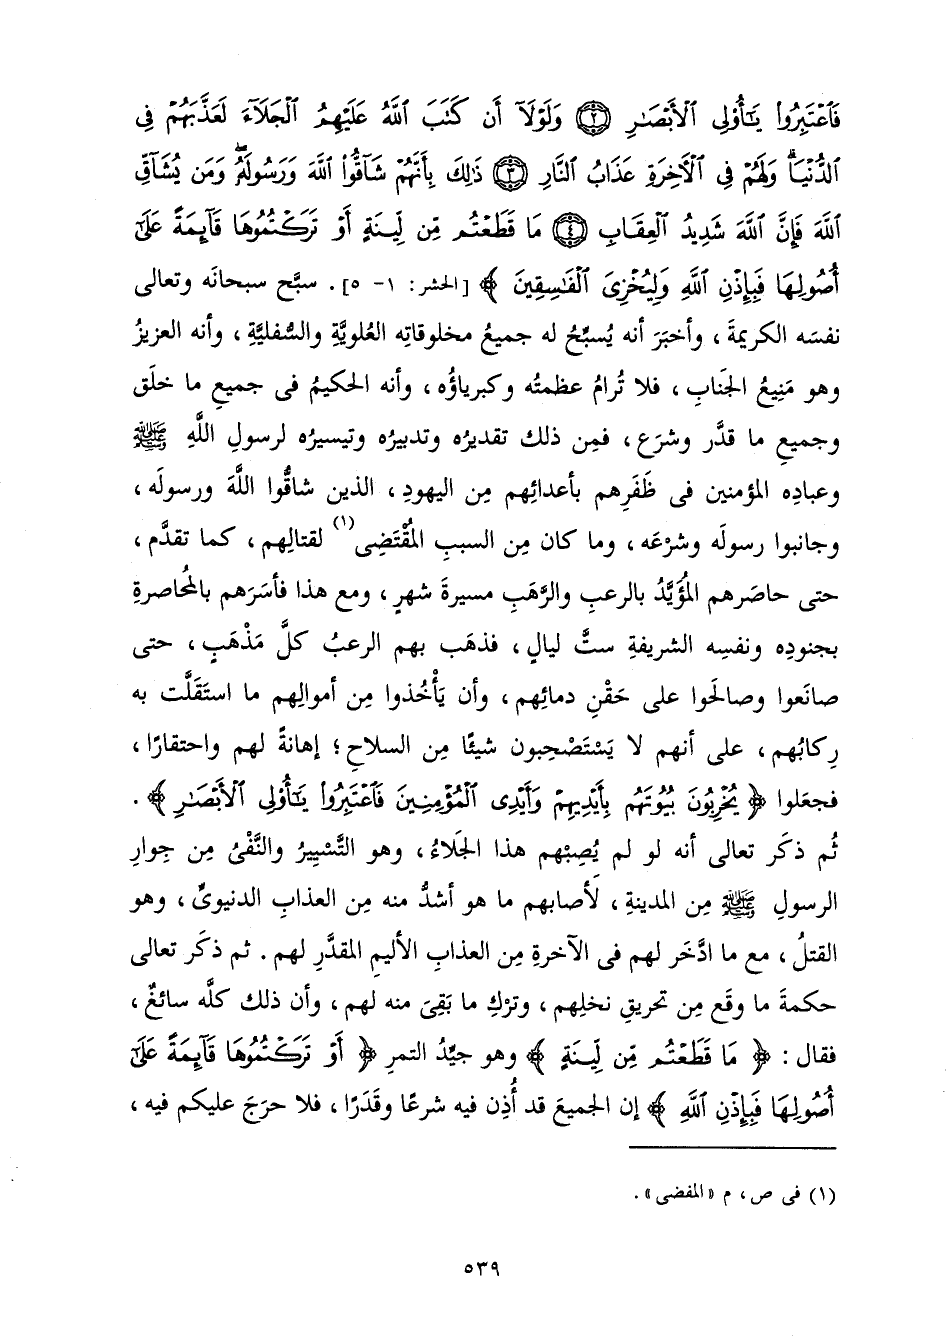 فَٱعۡتَبِرُواْ يَٰٓأُوْلِي ٱلۡأَبۡصَٰرِ ﴿٢﴾ وَلَوۡلَآ أَن كَتَبَ ٱللَّهُ عَلَيۡهِمُ ٱلۡجَلَآءَ لَعَذَّبَهُمۡ فِي
ٱلدُّنۡيَاۖ وَلَهُمۡ فِي ٱلۡأٓخِرَةِ عَذَابُ ٱلنَّارِ ﴿٣﴾ ذَٰلِكَ بِأَنَّهُمۡ شَآقُّواْ ٱللَّهَ وَرَسُولَهُۥۖ وَمَن يُشَآقِّ
ٱللَّهَ فَإِنَّ ٱللَّهَ شَدِيدُ ٱلۡعِقَابِ ﴿٤﴾ مَا قَطَعۡتُم مِّن لِّينَةٍ أَوۡ تَرَكۡتُمُوهَا قَآئِمَةً عَلَىٰٓ
أُصُولِهَا فَبِإِذۡنِ ٱللَّهِ وَلِيُخۡزِيَ ٱلۡفَٰسِقِينَ ﴾ [الحشر: ١- ٥]. سبَّح سبحانَه وتعالى
نفسَه الكريمةَ، وأخبَرَ أنه يُسبِّحُ له جميعُ مخلوقاتِه العُلويَّةِ والسُّفليَّةِ، وأنه العزيزُ
وهو مَنِيعُ الجَنابِ، فلا تُرامُ عظمتُه وكبرياؤُه، وأنه الحكيمُ فى جميعِ ما خلَق
وجميعِ ما قدَّر وشرَع، فمِن ذلك تقديرُه وتدبيرُه وتيسيرُه لرسولِ اللَّهِ ﷺ
وعبادِه المؤمنين فى ظَفَرِهم بأعدائِهم مِن اليهودِ، الذين شاقُّوا اللَّهَ ورسولَه،
وجانبوا رسولَه وشرْعَه، وما كان مِن السببِ المُقْتَضِى(١) لقتالِهم، كما تقدَّم،
حتى حاصَرهم المُؤَيَّدُ بالرعبِ والرَّهَبِ مسيرةَ شهرٍ، ومع هذا فأسَرَهم بالمُحاصرةِ
بجنودِه ونفسِه الشريفةِ ستَّ ليالٍ، فذهَب بهم الرعبُ كلَّ مَذْهَبٍ، حتى
صانَعوا وصالَحوا على حَقْنِ دمائِهم، وأن يَأْخُذوا مِن أموالِهم ما استَقَلَّت به
رِكابُهم، على أنهم لا يَسْتَصْحِبون شيئًا مِن السلاحِ؛ إهانةً لهم واحتقارًا،
فجعَلوا ﴿ يُخۡرِبُونَ بُيُوتَهُم بِأَيۡدِيهِمۡ وَأَيۡدِي ٱلۡمُؤۡمِنِينَ فَٱعۡتَبِرُواْ يَٰٓأُوْلِي ٱلۡأَبۡصَٰرِ ﴾.
ثُم ذكَر تعالى أنه لو لم يُصِبْهم هذا الجَلاءُ، وهو التَّسْيِيرُ والنَّفْىُ مِن جِوارِ
الرسولِ ﷺ مِن المدينةِ، لَأصابهم ما هو أشدُّ منه مِن العذابِ الدنيوىِّ، وهو
القتلُ، مع ما ادَّخَر لهم فى الآخرةِ مِن العذابِ الأليمِ المقدَّرِ لهم. ثم ذكَر تعالى
حكمةَ ما وقَع مِن تحريقِ نخلِهم، وترْكِ ما بَقِىَ منه لهم، وأن ذلك كلَّه سائغٌ،
فقال: ﴿ مَا قَطَعۡتُم مِّن لِّينَةٍ ﴾ وهو جيِّدُ التمرِ ﴿ أَوۡ تَرَكۡتُمُوهَا قَآئِمَةً عَلَىٰٓ
أُصُولِهَا فَبِإِذۡنِ ٱللَّهِ ﴾ إن الجميعَ قد أُذِن فيه شرعًا وقَدَرًا، فلا حرَجَ عليكم فيه،
(١) فى ص، م «المفضى».
٥٣٩